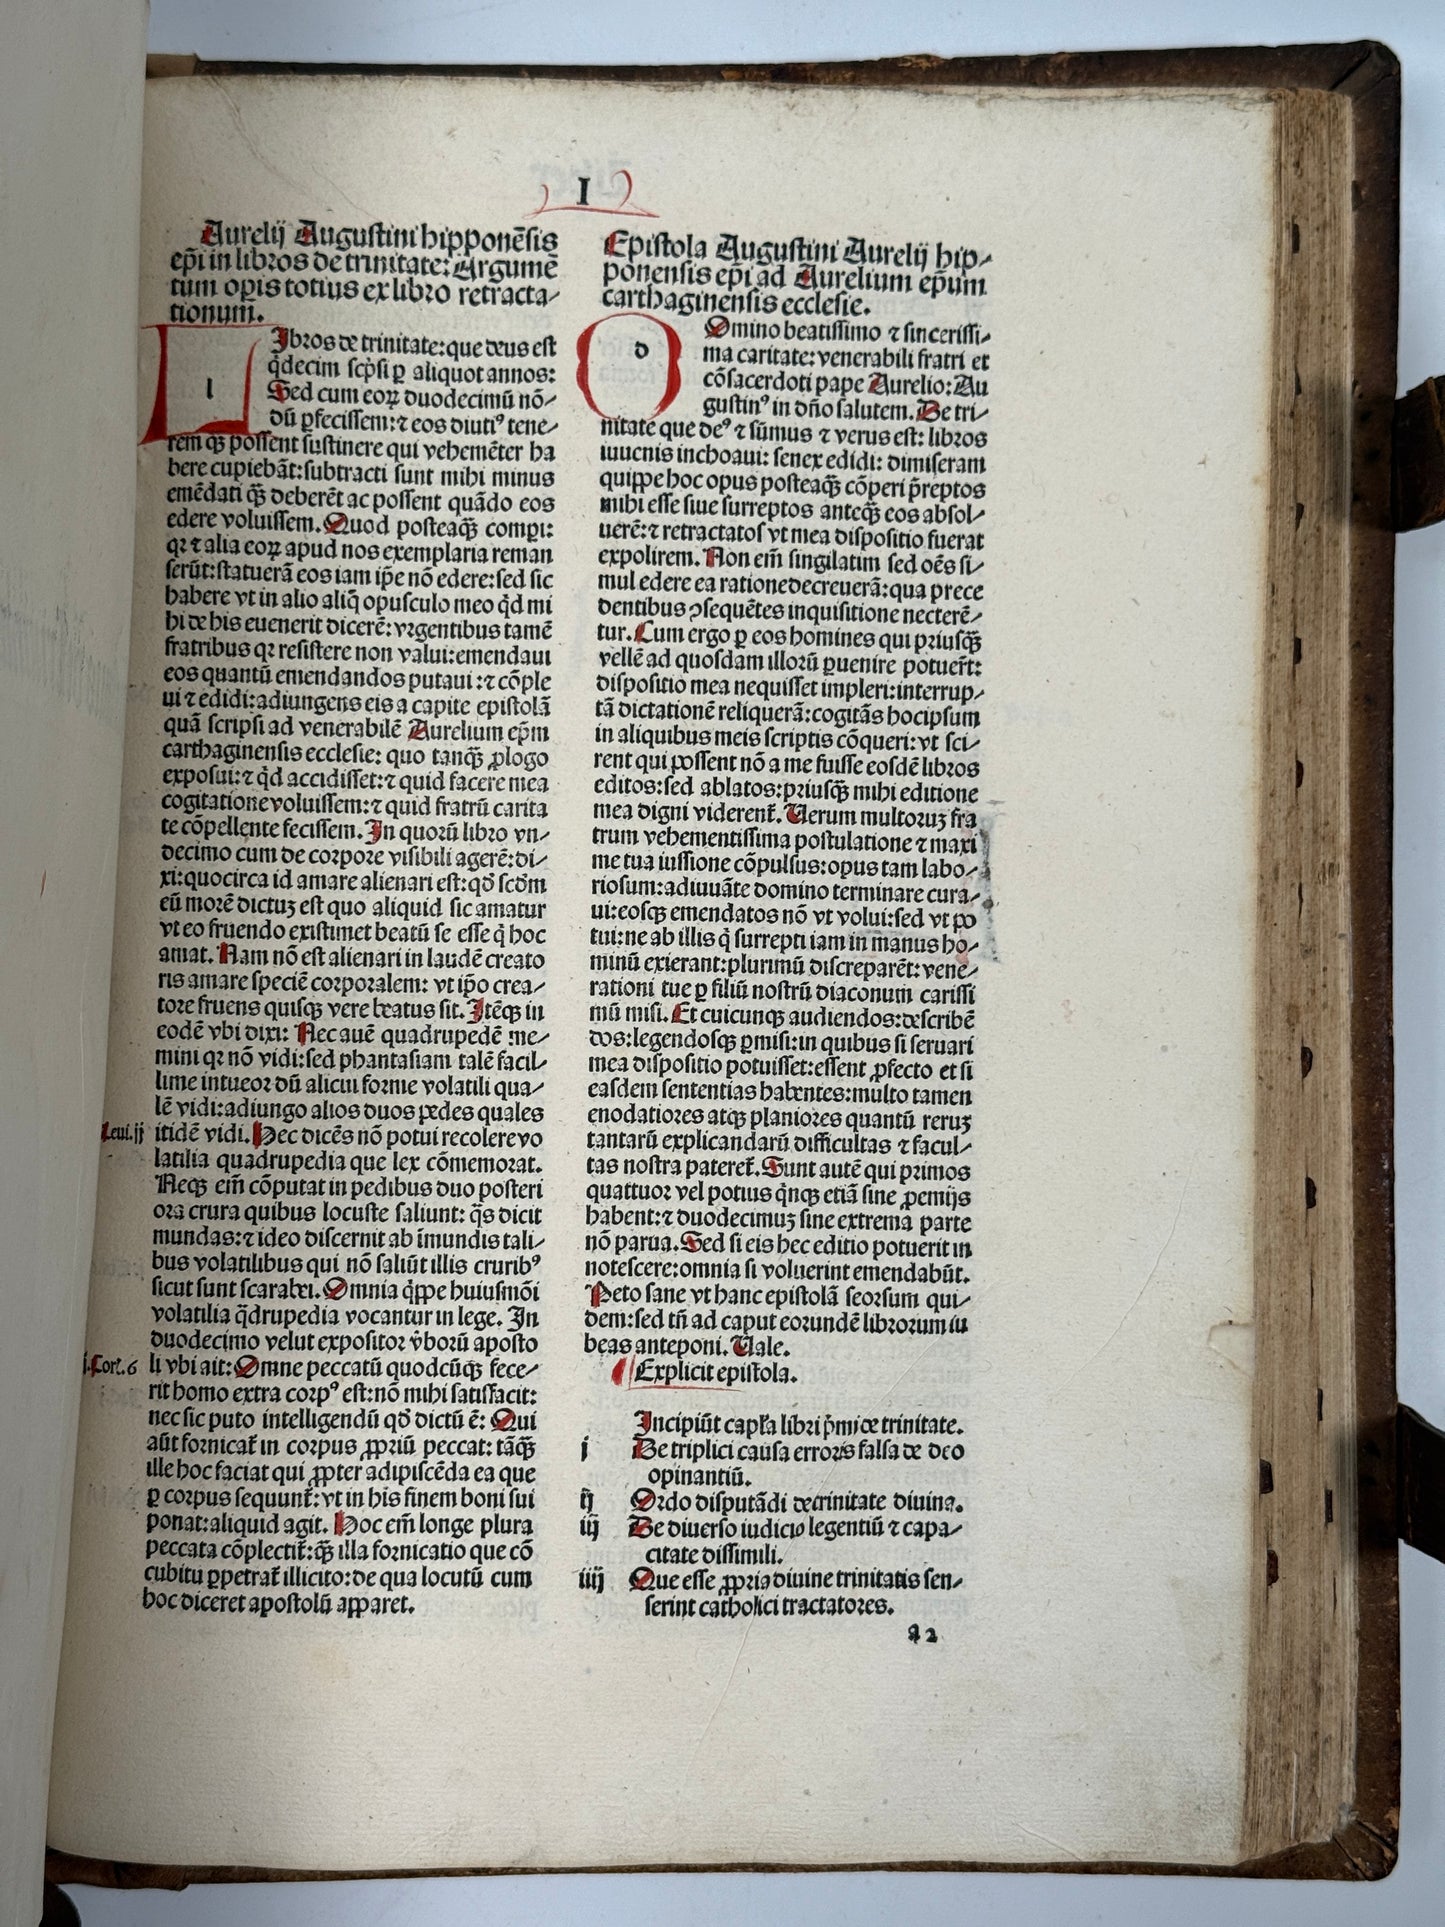 I
Aurelij Augustini hipponēsis
ep̄i in libros de trinitate: Argumē
tum op̄is totius ex libro retracta⸗
tionum.
l
Ibros de trinitate: que deus est
q̄decim scp̄si ꝑ aliquot annos:
Sed cum eoꝝ duodecimū nō⸗
dū ꝑfecissem: ⁊ eos diutiꝰ tene⸗
rem qꝫ possent sustinere qui vehemēter ha
bere cupiebāt: subtracti sunt mihi minus
emēdati qꝫ̄ deberēt ac possent quādo eos
edere voluissem. Quod posteaqꝫ̄ comꝑi:
qꝛ ⁊ alia eoꝝ apud nos exemplaria reman
serūt: statuerā eos iam ip̄e nō edere: sed sic
habere vt in alio aliq̄ opusculo meo q̄d mi
hi de his euenerit dicerē: vrgentibus tamē
fratribus qꝛ resistere non valui: emendaui
eos quantū emendandos putaui: ⁊ cōple
ui ⁊ edidi: adiungens eis a capite epistolā
quā scripsi ad venerabilē Aurelium ep̄m
carthaginensis ecclesie: quo tanqꝫ̄ ꝓlogo
exposui: ⁊ q̄d accidisset: ⁊ quid facere mea
cogitatione voluissem: ⁊ quid fratrū carita
te cōpellente fecissem. In quorū libro vn⸗
decimo cum de corpore visibili agerē: di⸗
xi: quocirca id amare alienari est: qd̄ scd̄m
eū morē dictuꝫ est quo aliquid sic amatur
vt eo fruendo existimet beatū se esse q̄ hoc
amat. Nam nō est alienari in laudē creato
ris amare speciē corporalem: vt ip̄o crea⸗
tore fruens quisqꝫ vere beatus sit. Itēqꝫ in
eodē vbi dixi: Nec auē quadrupedē me⸗
mini qꝛ nō vidi: sed phantasiam talē facil⸗
lime intueor dū alicui forme volatili qua⸗
lē vidi: adiungo alios duos pedes quales
Leui.ij itidē vidi. Hec dicēs nō potui recolere vo
latilia quadrupedia que lex cōmemorat.
Neqꝫ em̄ cōputat in pedibus duo posteri
ora crura quibus locuste saliunt: q̄s dicit
mundas: ⁊ ideo discernit ab īmundis tali⸗
bus volatilibus qui nō saliūt illis cruribꝰ
sicut sunt scarabei. Omnia q̄ppe huiusmōi
volatilia q̄drupedia vocantur in lege. In
duodecimo velut expositor v̄borū aposto
j.Corī.6 li vbi ait: Omne peccatū quodcūqꝫ fece⸗
rit homo extra corpꝰ est: nō mihi satisfacit:
nec sic puto intelligendū qd̄ dictū ē: Qui
aūt fornicat̄ in corpus ꝓpriū peccat: tāqꝫ̄
ille hoc faciat qui ꝓpter adipiscēda ea que
ꝑ corpus sequunt̄: vt in his finem boni sui
ponat: aliquid agit. Hoc em̄ longe plura
peccata cōplectit̄: qꝫ̄ illa fornicatio que cō
cubitu ꝑpetrat̄ illicito: de qua locutū cum
hoc diceret apostolū apparet.
Epistola Augustini Aurelij hip⸗
ponensis ep̄i ad Aurelium ep̄um
carthaginensis ecclesie.
d
Omino beatissimo ⁊ sincerissi⸗
ma caritate: venerabili fratri et
cōsacerdoti pape Aurelio: Au
gustinꝰ in dn̄o salutem. De tri⸗
nitate que deꝰ ⁊ sūmus ⁊ verus est: libros
iuuenis inchoaui: senex edidi: dimiseram
quippe hoc opus posteaqꝫ̄ cōperi p̄reptos
mihi esse siue surreptos anteqꝫ̄ eos absol⸗
uerē: ⁊ retractatos vt mea dispositio fuerat
expolirem. Non em̄ singilatim sed oēs si⸗
mul edere ea ratione decreuerā: qua prece
dentibus ꝯsequētes inquisitione necterē⸗
tur. Cum ergo ꝑ eos homines qui priusqꝫ̄
vellē ad quosdam illorū ꝑuenire potuer̄t:
dispositio mea nequisset impleri: interrup⸗
tā dictationē reliquerā: cogitās hocipsum
in aliquibus meis scriptis cōqueri: vt sci⸗
rent qui possent nō a me fuisse eosdē libros
editos: sed ablatos: priusqꝫ̄ mihi editione
mea digni viderent̄. Verum multoruꝫ fra
trum vehementissima postulatione ⁊ maxi
me tua iussione cōpulsus: opus tam labo⸗
riosum: adiuuāte domino terminare cura⸗
ui: eosqꝫ emendatos nō vt volui: sed vt po
tui: ne ab illis q̄ surrepti iam in manus ho⸗
minū exierant: plurimū discreparēt: vene⸗
rationi tue ꝑ filiū nostrū diaconum carissi
mū misi. Et cuicunqꝫ audiendos: describē
dos: legendosqꝫ ꝑmisi: in quibus si seruari
mea dispositio potuisset: essent ꝓfecto et si
easdem sententias habentes: multo tamen
enodatiores atqꝫ planiores quantū reruꝫ
tantarū explicandarū difficultas ⁊ facul⸗
tas nostra pateret̄. Sunt autē qui primos
quattuor vel potius q̄nqꝫ etiā sine ꝓemijs
habent: ⁊ duodecimuꝫ sine extrema parte
nō parua. Sed si eis hec editio potuerit in
notescere: omnia si voluerint emendabūt.
Peto sane vt hanc epistolā seorsum qui⸗
dem: sed tn̄ ad caput eorundē librorum iu
beas anteponi. Vale.
Explicit epistola.
Incipiūt capl̄a libri p̄mi de trinitate.
i De triplici causa erroris falsa de deo
opinantiū.
ij Ordo disputādi de trinitate diuina.
iij De diuerso iudicio legentiū ⁊ capa⸗
citate dissimili.
iiij Que esse ꝓpria diuine trinitatis sen⸗
serint catholici tractatores.
a 2